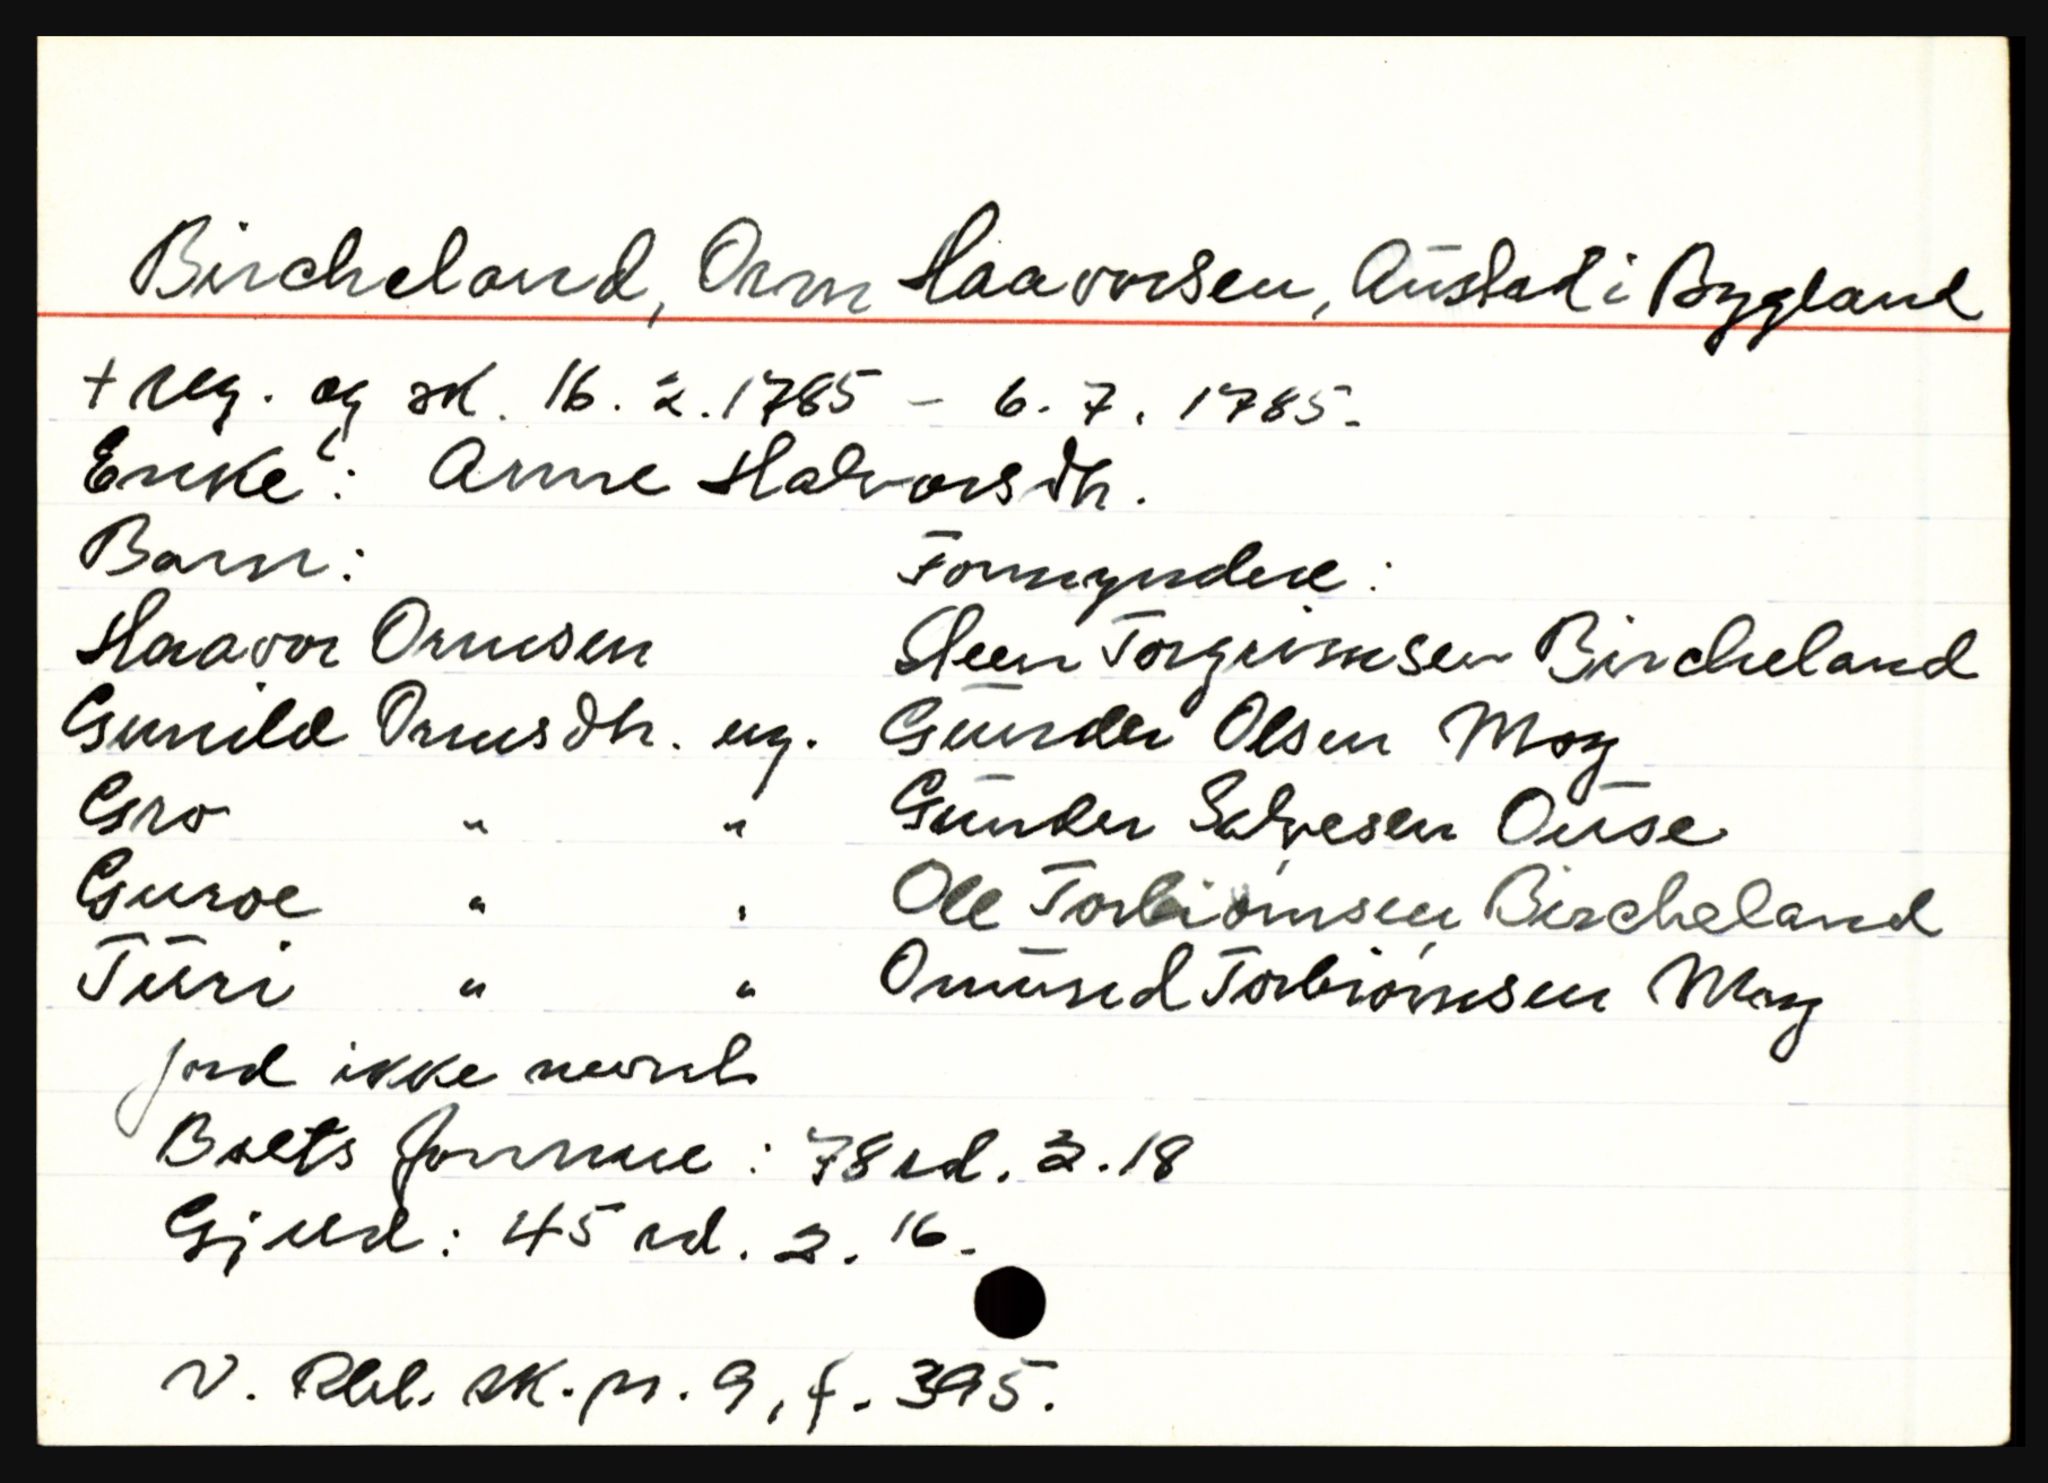 Bircheland, Orm Haavorsen, Austad i Bygland
+ reg. og sk. 16.2.1785 - 6.7.1785.
Enke: Anne Halvorsdtr.
Barn: Formyndere:
Haavor Ormsen Steen Torgrimsen Bircheland
Gunild Ormsdtr. ug. Gunder Olsen Moy
Gro " " Gunder Salvesen Ouse
Guroe " " Ole Torbiørnsen Bircheland
Turi " " Omund Torbiørnsen Moy
Jord ikke nevnt
Boets formue: 78 rd. 3.18
Gjeld: 45 rd. 2.16.
V. Rbl. sk. pr. 9, f. 395.